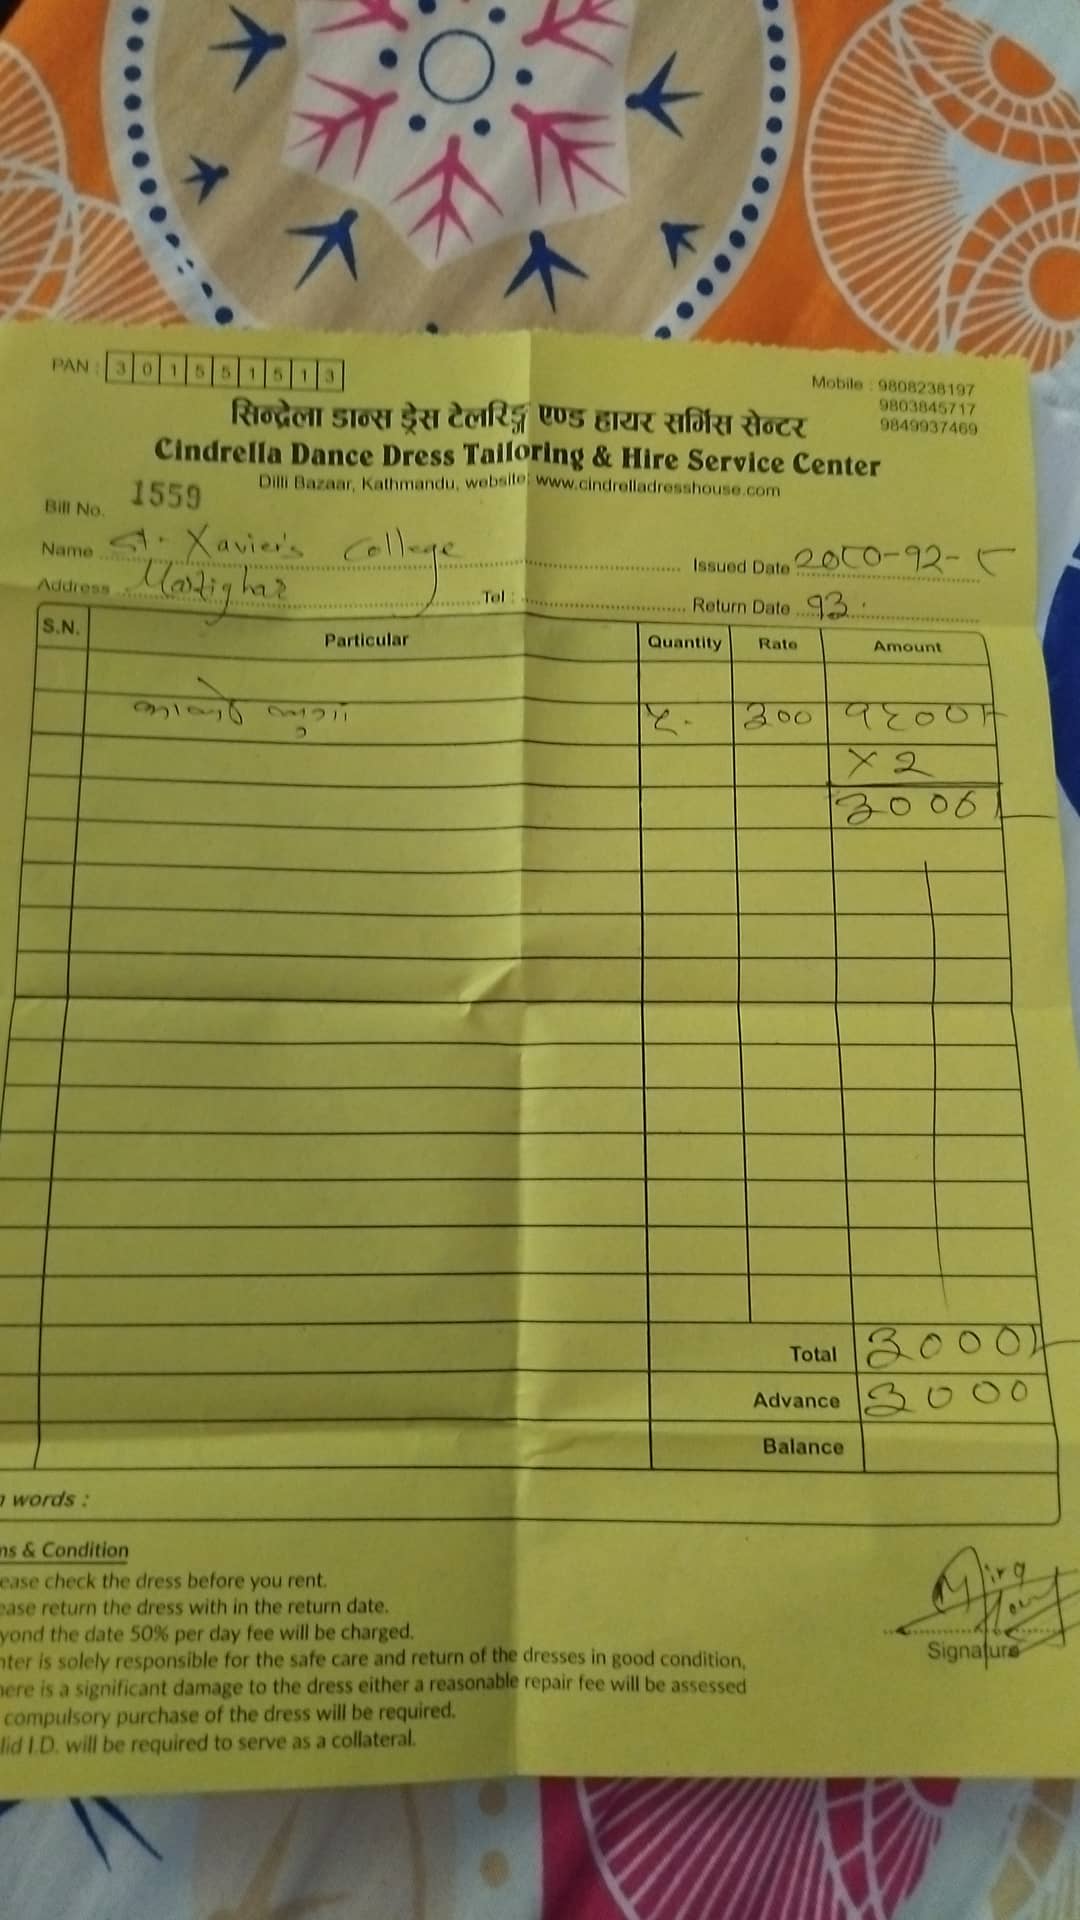 PAN : 301551513
Mobile : 9808238197
9803845717
9849937469
सिन्द्रेला डान्स ड्रेस टेलरिङ्ग एण्ड हायर सर्भिस सेन्टर
Cindrella Dance Dress Tailoring & Hire Service Center
Dilli Bazaar, Kathmandu, website: www.cindrelladresshouse.com
Bill No. 1559
Name St. Xavier's College
Issued Date २०८०-१२-८
Address Maitighar Tel :
Return Date १३
S.N. Particular Quantity Rate Amount
५ ३०० १५००/-
x २
३०००/-
Total ३०००/-
Advance ३०००
Balance
words :
& Condition
check the dress before you rent.
return the dress with in the return date.
the date 50% per day fee will be charged.
is solely responsible for the safe care and return of the dresses in good condition,
is a significant damage to the dress either a reasonable repair fee will be assessed
compulsory purchase of the dress will be required.
I.D. will be required to serve as a collateral.
Signature